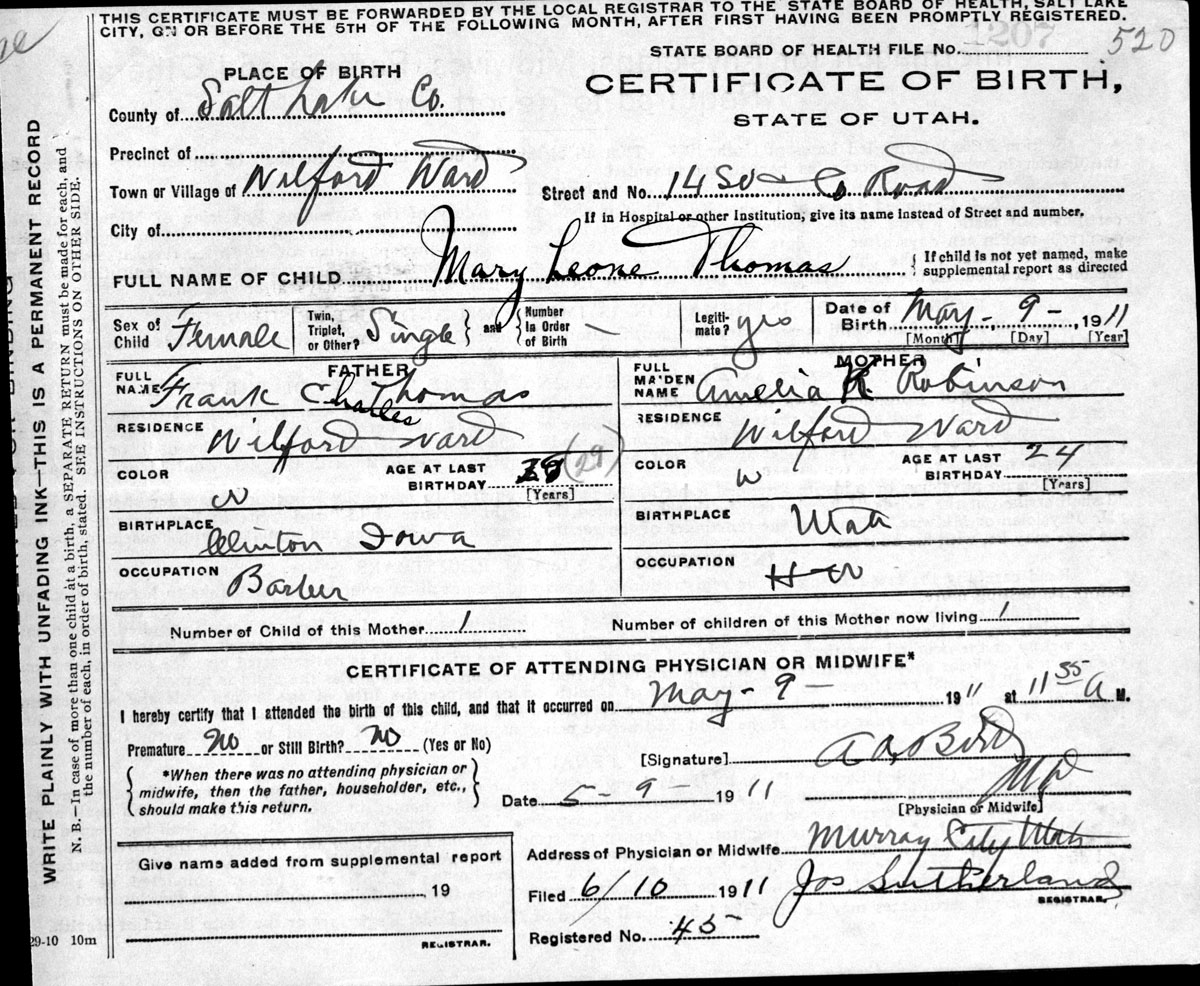 THIS CERTIFICATE MUST BE FORWARDED BY THE LOCAL REGISTRAR TO THE STATE BOARD OF HEALTH, SALT LAKE
CITY, ON OR BEFORE THE 5TH OF THE FOLLOWING MONTH, AFTER FIRST HAVING BEEN PROMPTLY REGISTERED.
STATE BOARD OF HEALTH FILE No. 1207 520
PLACE OF BIRTH
CERTIFICATE OF BIRTH,
County of Salt Lake Co.
STATE OF UTAH.
Precinct of
Town or Village of Wilford Ward Street and No. 14 So Co Road
If in Hospital or other Institution, give its name instead of Street and number.
City of
FULL NAME OF CHILD Mary Leone Thomas { If child is not yet named, make supplemental report as directed
Sex of Child Female Twin, Triplet, or Other? Single } and { Number in Order of Birth – Legitimate? yes Date of Birth May - 9 - , 1911
[Month] [Day] [Year]
FATHER MOTHER
FULL NAME Frank Charles Thomas FULL MAIDEN NAME Amelia R Robinson
RESIDENCE Wilford Ward RESIDENCE Wilford Ward
COLOR W AGE AT LAST BIRTHDAY (29) [Years] COLOR W AGE AT LAST BIRTHDAY 24 [Years]
BIRTHPLACE Clinton Iowa BIRTHPLACE Utah
OCCUPATION Barber OCCUPATION H-W
Number of Child of this Mother 1 Number of children of this Mother now living 1
CERTIFICATE OF ATTENDING PHYSICIAN OR MIDWIFE*
I hereby certify that I attended the birth of this child, and that it occurred on May - 9 - 1911 at 11 55 A M.
Premature No or Still Birth? No (Yes or No)
[Signature] A A Bird
MD
[Physician or Midwife]
{ *When there was no attending physician or
midwife, then the father, householder, etc.,
should make this return. }
Date 5 - 9 - 1911
Address of Physician or Midwife Murray City Utah
Give name added from supplemental report
, 19
REGISTRAR.
Filed 6/10 1911 Jos Sutherland
REGISTRAR.
Registered No. 45-
29-10 10m
WRITE PLAINLY WITH UNFADING INK—THIS IS A PERMANENT RECORD
N. B.—In case of more than one child at a birth, a SEPARATE RETURN must be made for each, and
the number of each, in order of birth, stated. SEE INSTRUCTIONS ON OTHER SIDE.